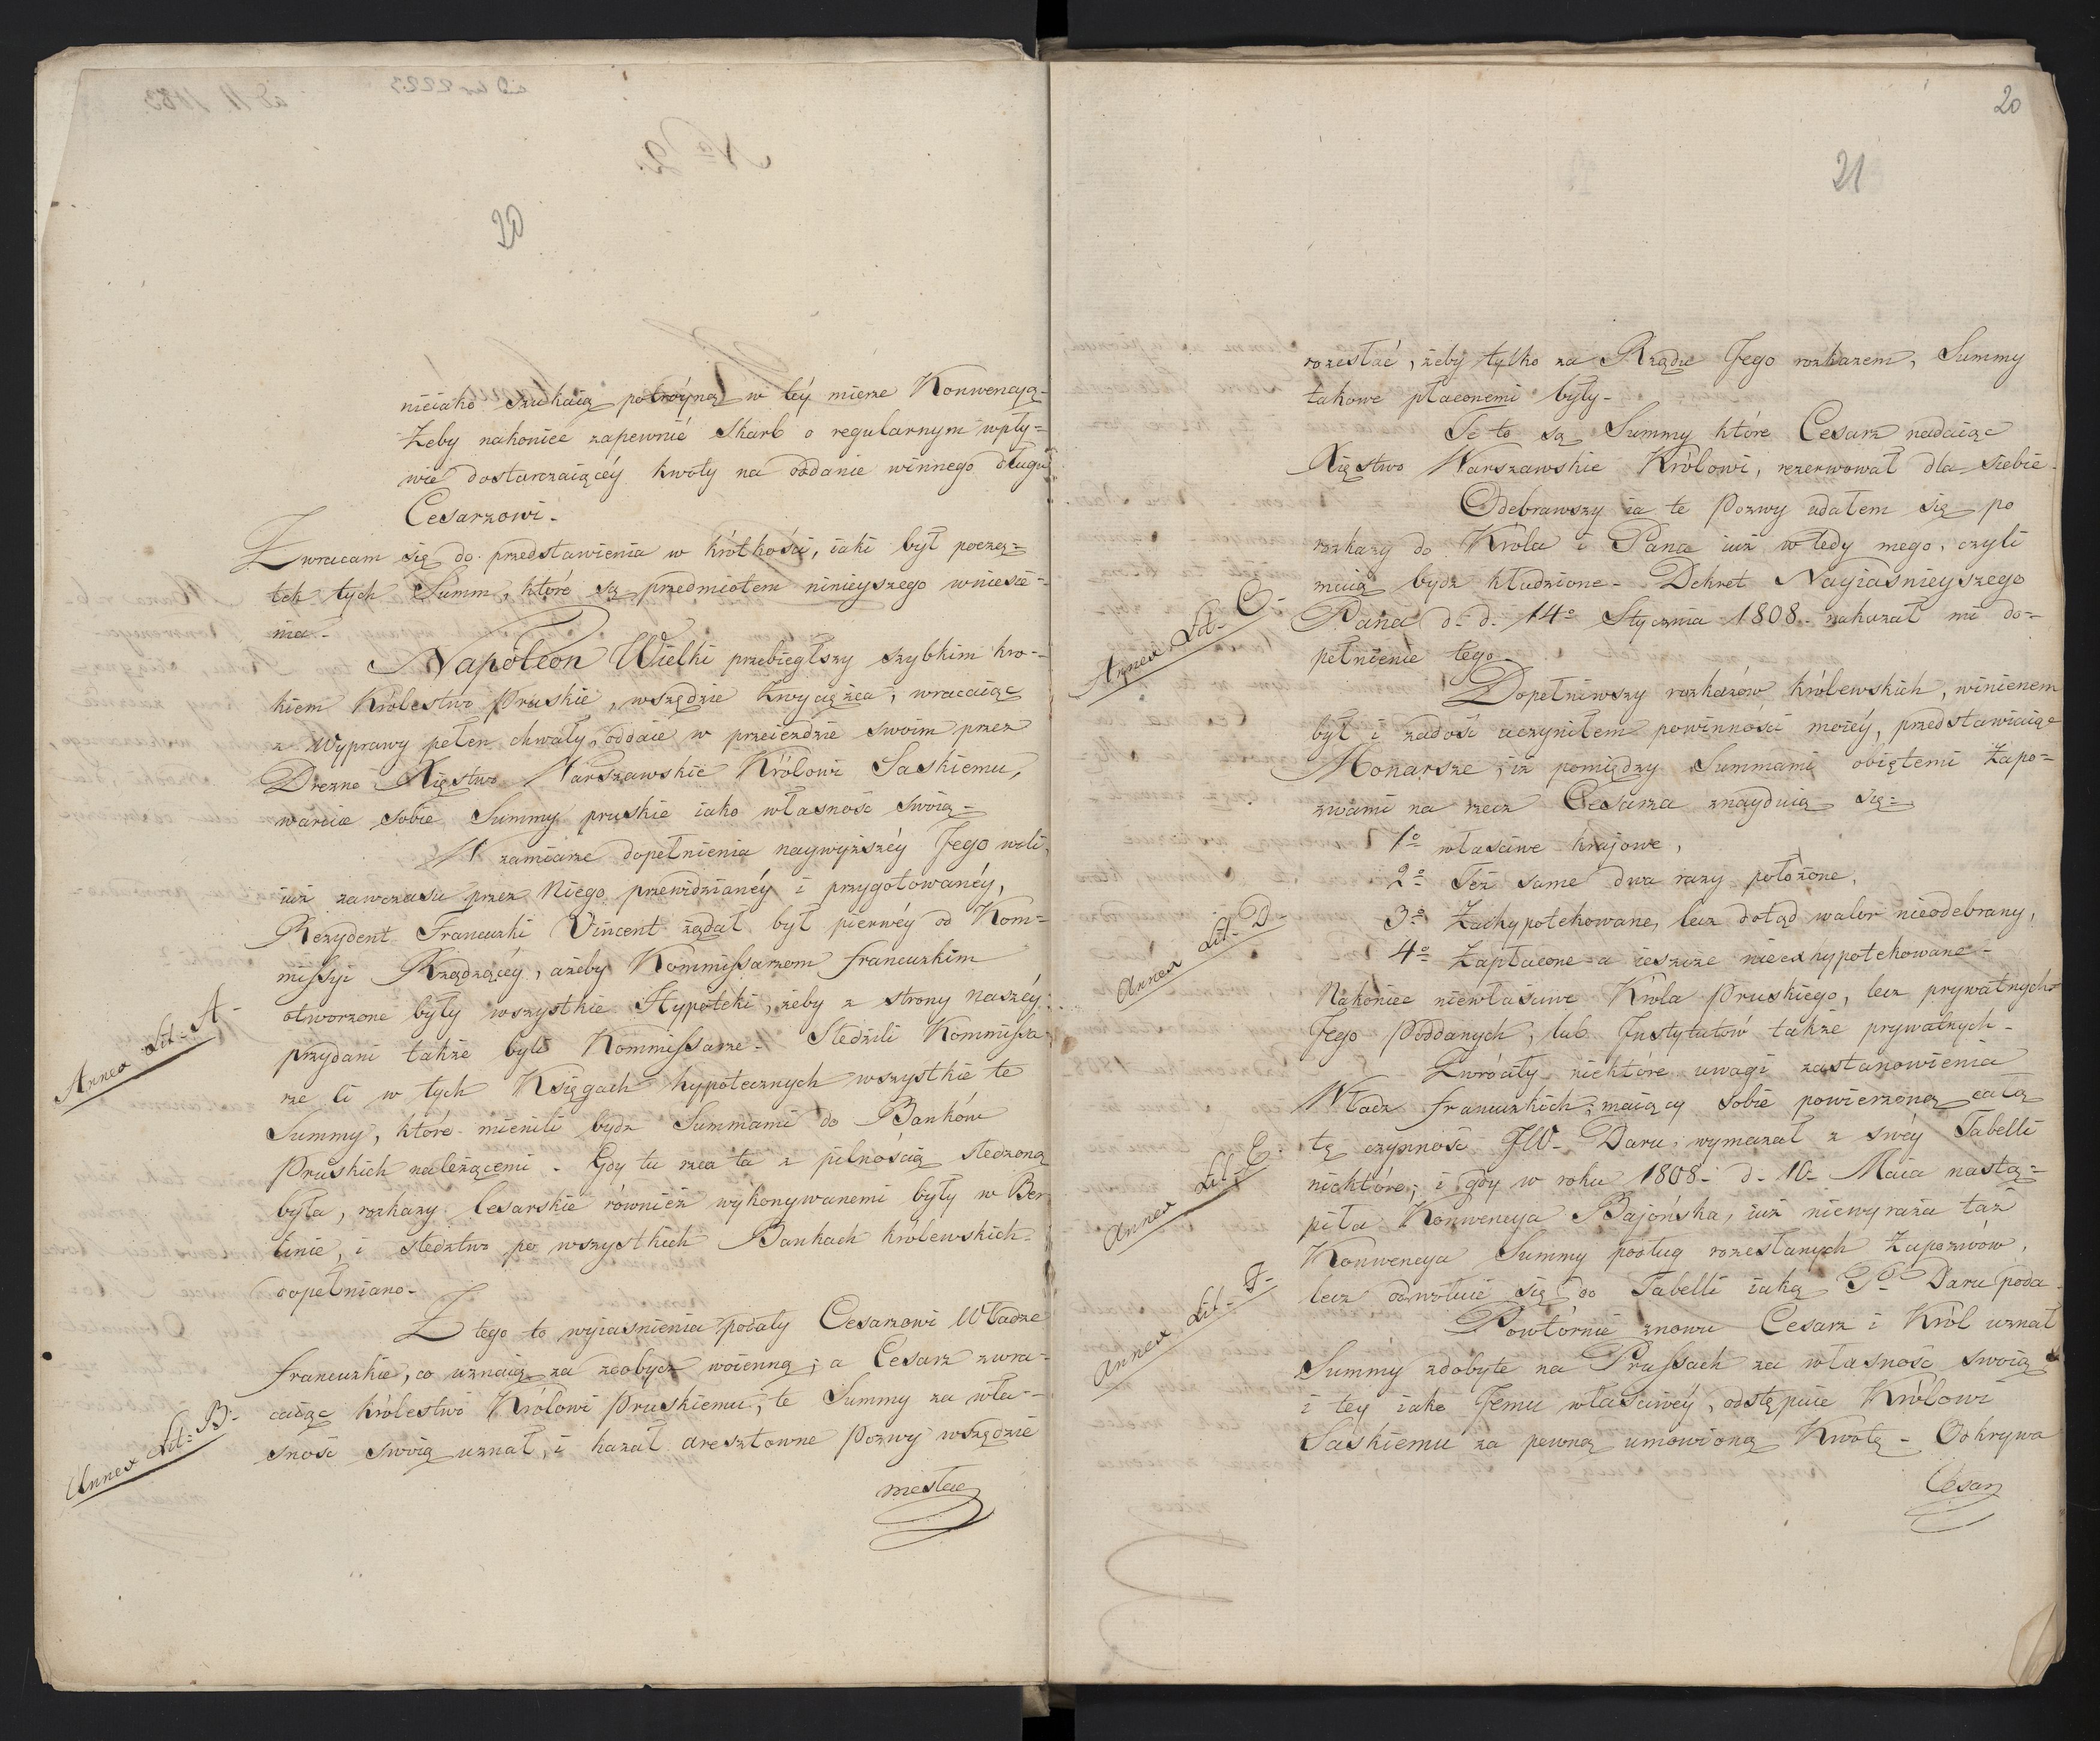 20
nieiako szukaią potróyną w téy mierze Konwencyą-
Żeby nakoniec zapewnić Skarb o regularnym wpły=
wie dostarczaiącéy kwoty na oddanie winnego długu
Cesarzowi.
Zwracam się do przedstawienia w krótkości, iaki był począ=
tek tych Summ, które są przedmiotem ninieyszego wniesie=
nia.
Napoleon Wielki przebiegłszy szybkim kro=
kiem Królestwo Pruskie, wszędzie Zwycięzca, wracaiąc
z Wyprawy pełen chwały, oddaie w przeieździe swoim przez
Drezno Xięstwo Warszawskie Królowi Saskiemu,
warując sobie Summy pruskie iako własność swoią-
W zamiarze dopełnienia naywyższéy Jego woli,
iuż zawczasu przez Niego przewidzianéy i przygotowanéy,
Rezydent Francuzki Vincent żądał był pierwéy od Kom=
missyi Rządzącéy, ażeby Kommissarzom francuzkim
otworzone były wszystkie Hypoteki, żeby z strony naszéy
przydani także byli Kommissarze- Śledzili Kommissa
rze ci w tych Księgach hypotecznych wszystkie te
Summy, które mienili bydz Summami do Banków
Pruskich należącemi. Gdy tu rzecz ta z pilnością śledzoną
była, rozkazy Cesarskie również wykonywanemi były w Ber
linie, i śledztwo po wszystkich Bankach królewskich
dopełniano.
Z tego to wyiaśnienia podały Cesarzowi Władze
francuzkie, co uznaią za zdobycz woienną; a Cesarz zwra=
caiąc królestwo Królowi Pruskiemu, te Summy za wła=
sność swoią uznał, i kazał aresztowne Pozwy wszędzie
rozesłać
Annex Lit. A.
Annex Lit. B.
20
21
rozesłać, żeby tylko za Rządu Jego rozkazem, Summy
takowe płaconemi były-
Te to są Summy które Cesarz nadaiąc
Xięstwo Warszawskie Królowi, rezerwował dla siebie.
Odebrawszy ia te Pozwy udałem się po
rozkazy do Króla i Pana iuż wtedy mego, czyli
maią bydz kładzione- Dekret Nayiaśnieyszego
Pana d. d. 14º Stycznia 1808. nakazał mi do=
pełnienie tego-
Dopełniwszy rozkazów królewskich, winienem
był i zadość uczyniłem powinności moiéy, przedstawiaiąc
Monarsze, iż pomiędzy Summami obiętemi Zapo=
zwami na rzecz Cesarza znayduią się-
1º właściwe krajowe,
2º Też same dwa razy położone,
3º Zahypotekowane, lecz dotąd walor nieodebrany,
4º Zapłacone a ieszcze nieexhypotekowane-
Nakoniec niewłaściwe Króla Pruskiego, lecz prywatnych
Jego Poddanych, lub Instytutów także prywatnych-
Zwróciły niektóre uwagi zastanowienia
Władz francuzkich; maiący sobie powierzoną całą
tę czynność JW. Daru, wymazał z swéy Tabelli
niektóre; i gdy w roku 1808. d. 10. Maia nastą=
piła Konwencya Bajońska, iuż niewyraża taż
Konwencya Summy podług rozesłanych Zapozwów,
lecz odwołuie się do Tabelli iaką P. Daru poda
Powtórnie znowu Cesarz i Król uznał
Summy zdobyte na Prussach za własność swoią
i téy iako Jemu właściwéy, odstępuie Królowi
Saskiemu za pewną umowioną Kwotę- Odkrywa
Cesarz
Annex Lit. C.
Annex Lit. D.
Annex Lit. E.
Annex Lit. F.